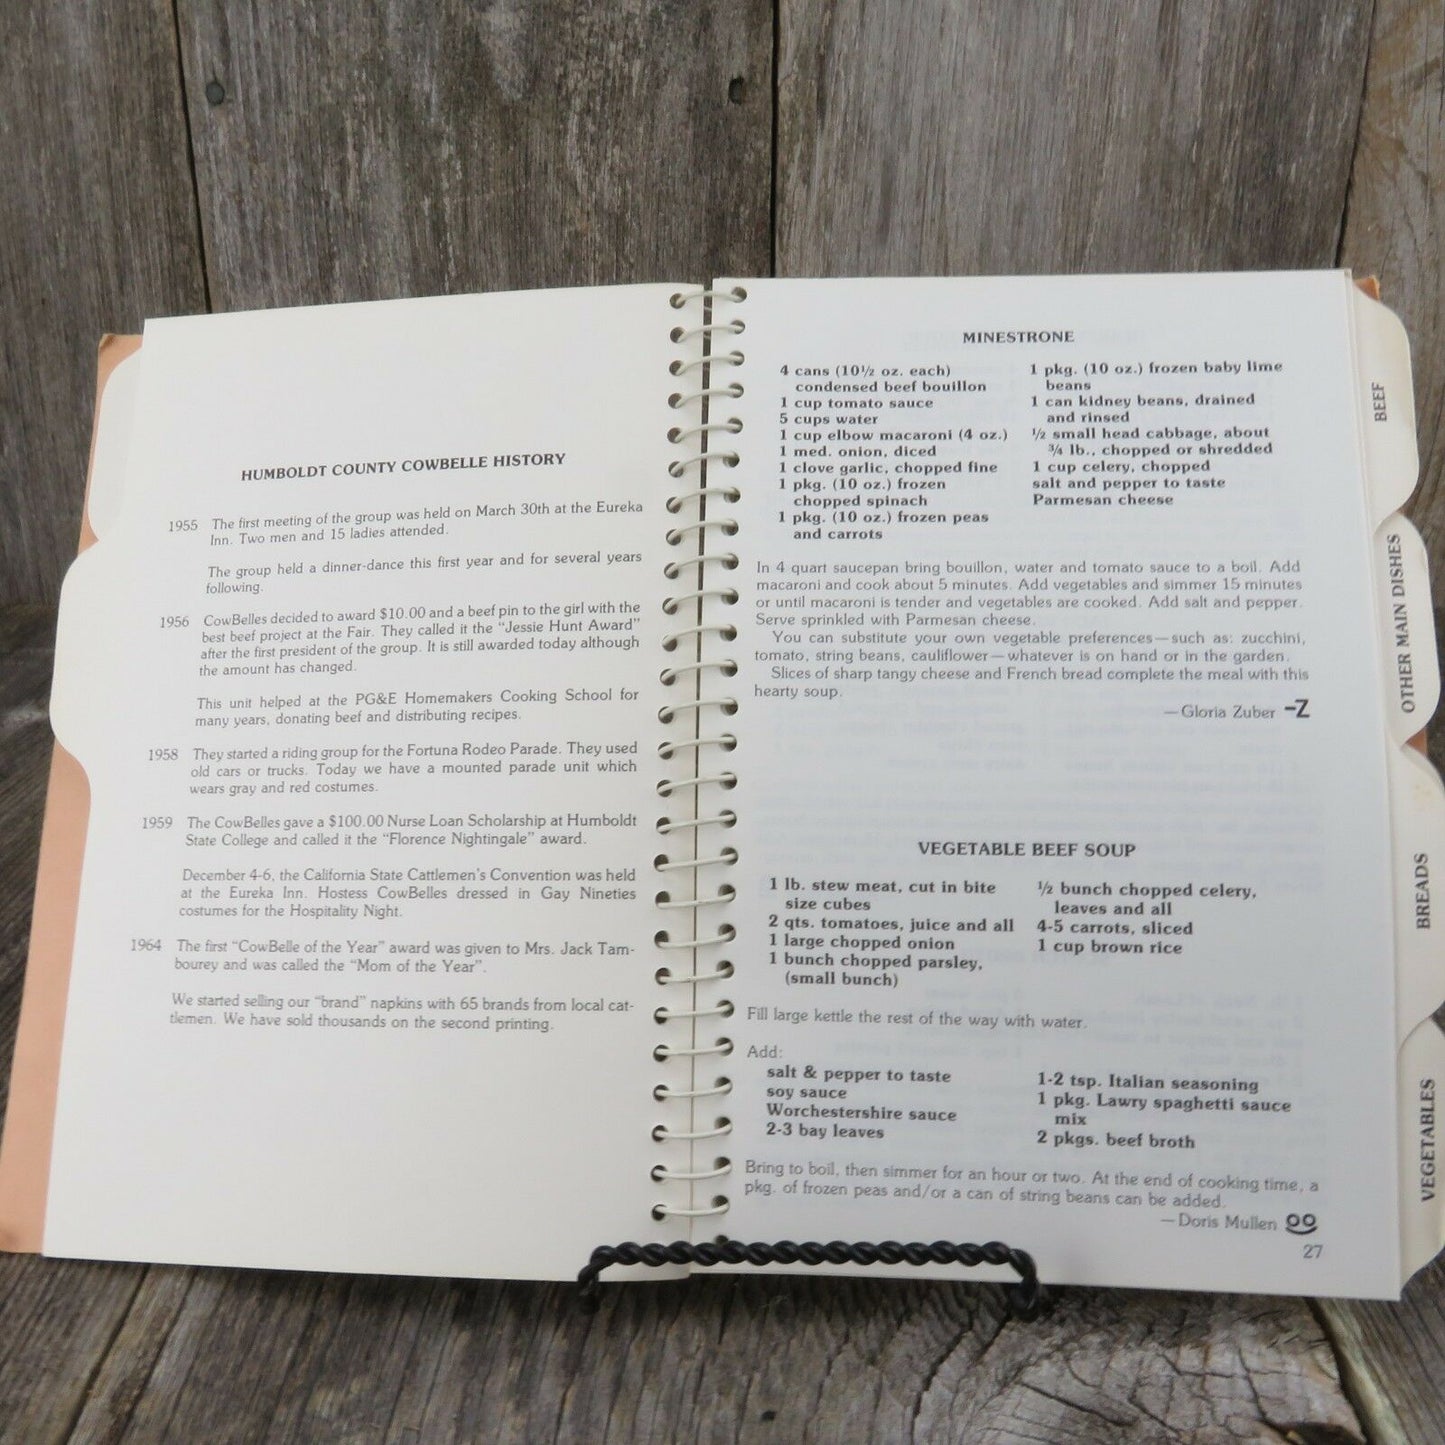 HUMBOLDT COUNTY COWBELLE HISTORY
1955 The first meeting of the group was held on March 30th at the Eureka
Inn. Two men and 15 ladies attended.
The group held a dinner-dance this first year and for several years
following.
1956 CowBelles decided to award $10.00 and a beef pin to the girl with the
best beef project at the Fair. They called it the “Jessie Hunt Award”
after the first president of the group. It is still awarded today although
the amount has changed.
This unit helped at the PG&E Homemakers Cooking School for
many years, donating beef and distributing recipes.
1958 They started a riding group for the Fortuna Rodeo Parade. They used
old cars or trucks. Today we have a mounted parade unit which
wears gray and red costumes.
1959 The CowBelles gave a $100.00 Nurse Loan Scholarship at Humboldt
State College and called it the “Florence Nightingale” award.
December 4-6, the California State Cattlemen's Convention was held
at the Eureka Inn. Hostess CowBelles dressed in Gay Nineties
costumes for the Hospitality Night.
1964 The first “CowBelle of the Year” award was given to Mrs. Jack Tam-
bourey and was called the “Mom of the Year”.
We started selling our “brand” napkins with 65 brands from local cat-
tlemen. We have sold thousands on the second printing.
MINESTRONE
4 cans (10½ oz. each)
condensed beef bouillon
1 cup tomato sauce
5 cups water
1 cup elbow macaroni (4 oz.)
1 med. onion, diced
1 clove garlic, chopped fine
1 pkg. (10 oz.) frozen
chopped spinach
1 pkg. (10 oz.) frozen peas
and carrots
1 pkg. (10 oz.) frozen baby lime
beans
1 can kidney beans, drained
and rinsed
½ small head cabbage, about
¾ lb., chopped or shredded
1 cup celery, chopped
salt and pepper to taste
Parmesan cheese
In 4 quart saucepan bring bouillon, water and tomato sauce to a boil. Add
macaroni and cook about 5 minutes. Add vegetables and simmer 15 minutes
or until macaroni is tender and vegetables are cooked. Add salt and pepper.
Serve sprinkled with Parmesan cheese.
You can substitute your own vegetable preferences—such as: zucchini,
tomato, string beans, cauliflower—whatever is on hand or in the garden.
Slices of sharp tangy cheese and French bread complete the meal with this
hearty soup.
—Gloria Zuber -Z
VEGETABLE BEEF SOUP
1 lb. stew meat, cut in bite
size cubes
2 qts. tomatoes, juice and all
1 large chopped onion
1 bunch chopped parsley,
(small bunch)
½ bunch chopped celery,
leaves and all
4-5 carrots, sliced
1 cup brown rice
Fill large kettle the rest of the way with water.
Add:
salt & pepper to taste
soy sauce
Worchestershire sauce
2-3 bay leaves
1-2 tsp. Italian seasoning
1 pkg. Lawry spaghetti sauce
mix
2 pkgs. beef broth
Bring to boil, then simmer for an hour or two. At the end of cooking time, a
pkg. of frozen peas and/or a can of string beans can be added.
—Doris Mullen
27
BEEF
OTHER MAIN DISHES
BREADS
VEGETABLES